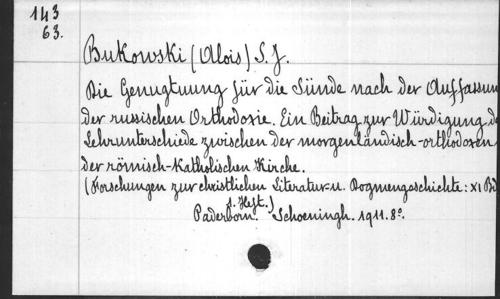 143
63.
Bukowski (Alois) S. J.
Die Genugtuung für die Sünde nach der Auffassun
der russischen Orthodoxie. Ein Beitrag zur Würdigung d
Lehrunterschiede zwischen der morgenländisch-orthodoxen
der römisch-katholischen Kirche.
(Forschungen zur christlichen Literatur u. Dogmengeschichte: XI Bd
1. Heft.)
Paderborn. Schoeningh. 1911. 8°.